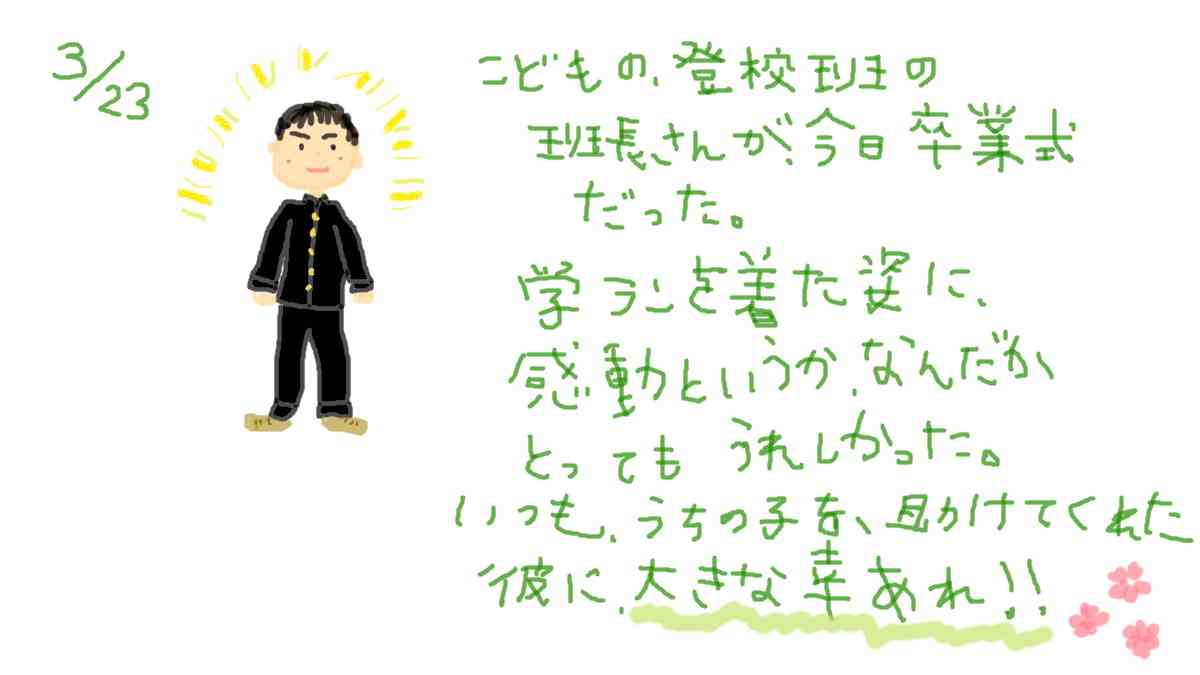 3/23
こどもの、登校班の
班長さんが、今日卒業式
だった。
学ランを着た姿に、
感動というか、なんだか
とっても うれしかった。
いつも、うちの子を、助けてくれた
彼に、大きな幸あれ!!